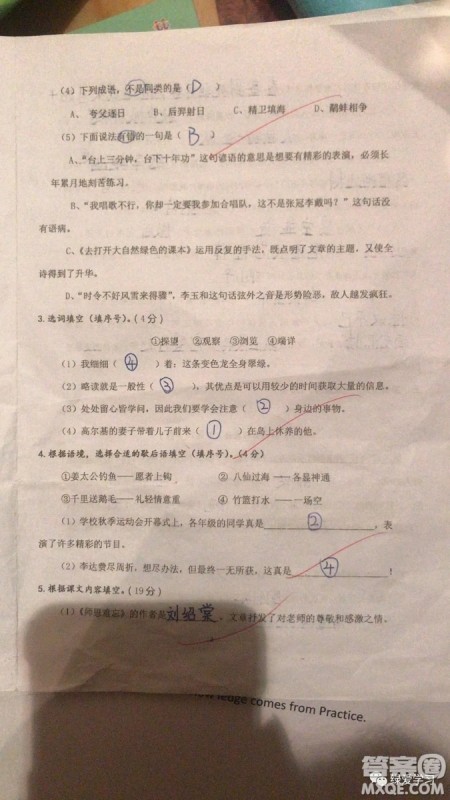 (4)下列成语，不是同类的是（ D ）
A、夸父逐日 B、后羿射日 C、精卫填海 D、鹬蚌相争
(5)下面说法有错的一句是（ B ）
A、“台上三分钟，台下十年功”这句谚语的意思是想要有精彩的表演，必须长
年累月地刻苦练习。
B、“我唱歌不行，你却一定要我参加合唱队，这不是张冠李戴吗？”这句话没
有语病。
C、《去打开大自然绿色的课本》运用反复的手法，既点明了文章的主题，又使全
诗得到了升华。
D、“时令不好风雪来得骤”，李玉和这句话弦外之音是形势险恶，敌人越发疯狂。
3.选词填空（填序号）。(4分)
①探望 ②观察 ③浏览 ④端详
(1)我细细（ ④ ）着：这条变色龙全身翠绿。
(2)略读就是一般性（ ③ ），其优点是可以用较少的时间获取大量的信息。
(3)处处留心皆学问，因此我们要学会注意（ ② ）身边的事物。
(4)高尔基的妻子带着儿子前来（ ① ）在岛上休养的他。
4.根据语境，选择合适的歇后语填空（填序号）。(4分)
①姜太公钓鱼——愿者上钩 ② 八仙过海——各显神通
③千里送鹅毛——礼轻情意重 ④ 竹篮打水——一场空
(1)学校秋季运动会开幕式上，各年级的同学真是 ② ，表
演了许多精彩的节目。
(2)李达费尽周折，想尽办法，但最终一无所获。这真是 ④ ！
5.根据课文内容填空。(19分)
(1)《师恩难忘》的作者是刘绍棠，文章抒发了对老师的尊敬和感激之情。
ledge comes from Practice.
答案圈
绿爱学习
MXQE.COM